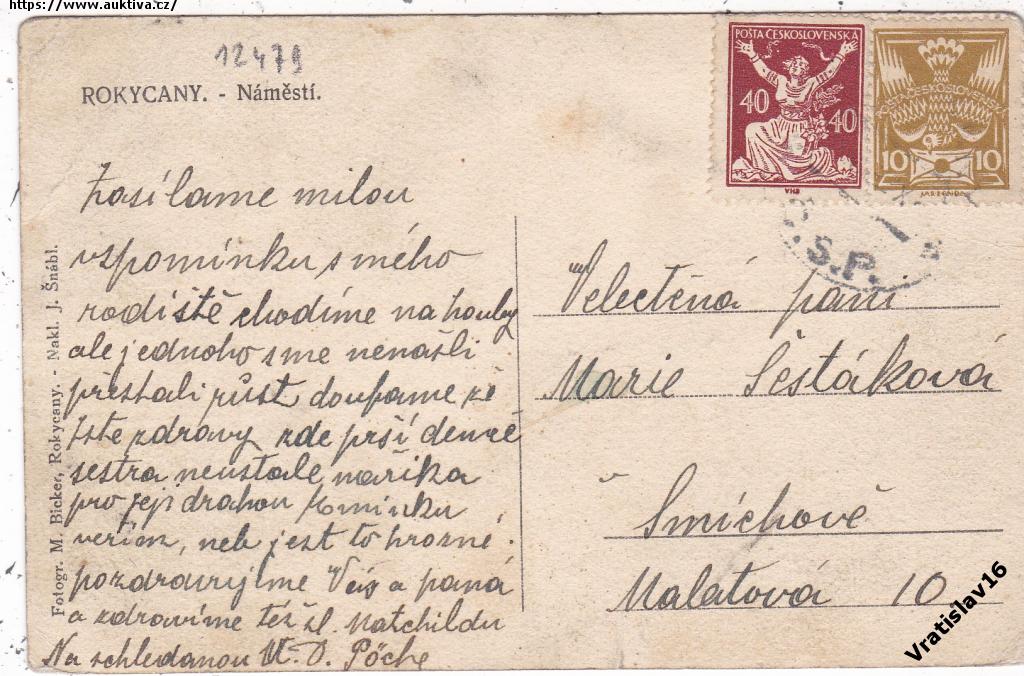 https://www.auktiva.cz/
12479
ROKYCANY. - Náměstí.
POŠTA ČESKOSLOVENSKÁ
40 40
10 10
Š.P.
Zasílame milou
vzpomínku s mého
rodiště chodíme na houby
ale jednoho sme nenašli
přestali růst doufame že
jste zdravy zde prší denně
sestra neustale nařika
pro jeji drahou
veřim, neb jest to hrozné.
pozdravujeme Vás a paná
a zdravíme též sl. Matchildu
Na schledanou M. D. Pöche
Velectěná paní
Marie Šestáková
v
Smíchově
Malatová 10
Fotogr. M. Bicker, Rokycany. - Nakl. J. Šnábl.
Vratislav16